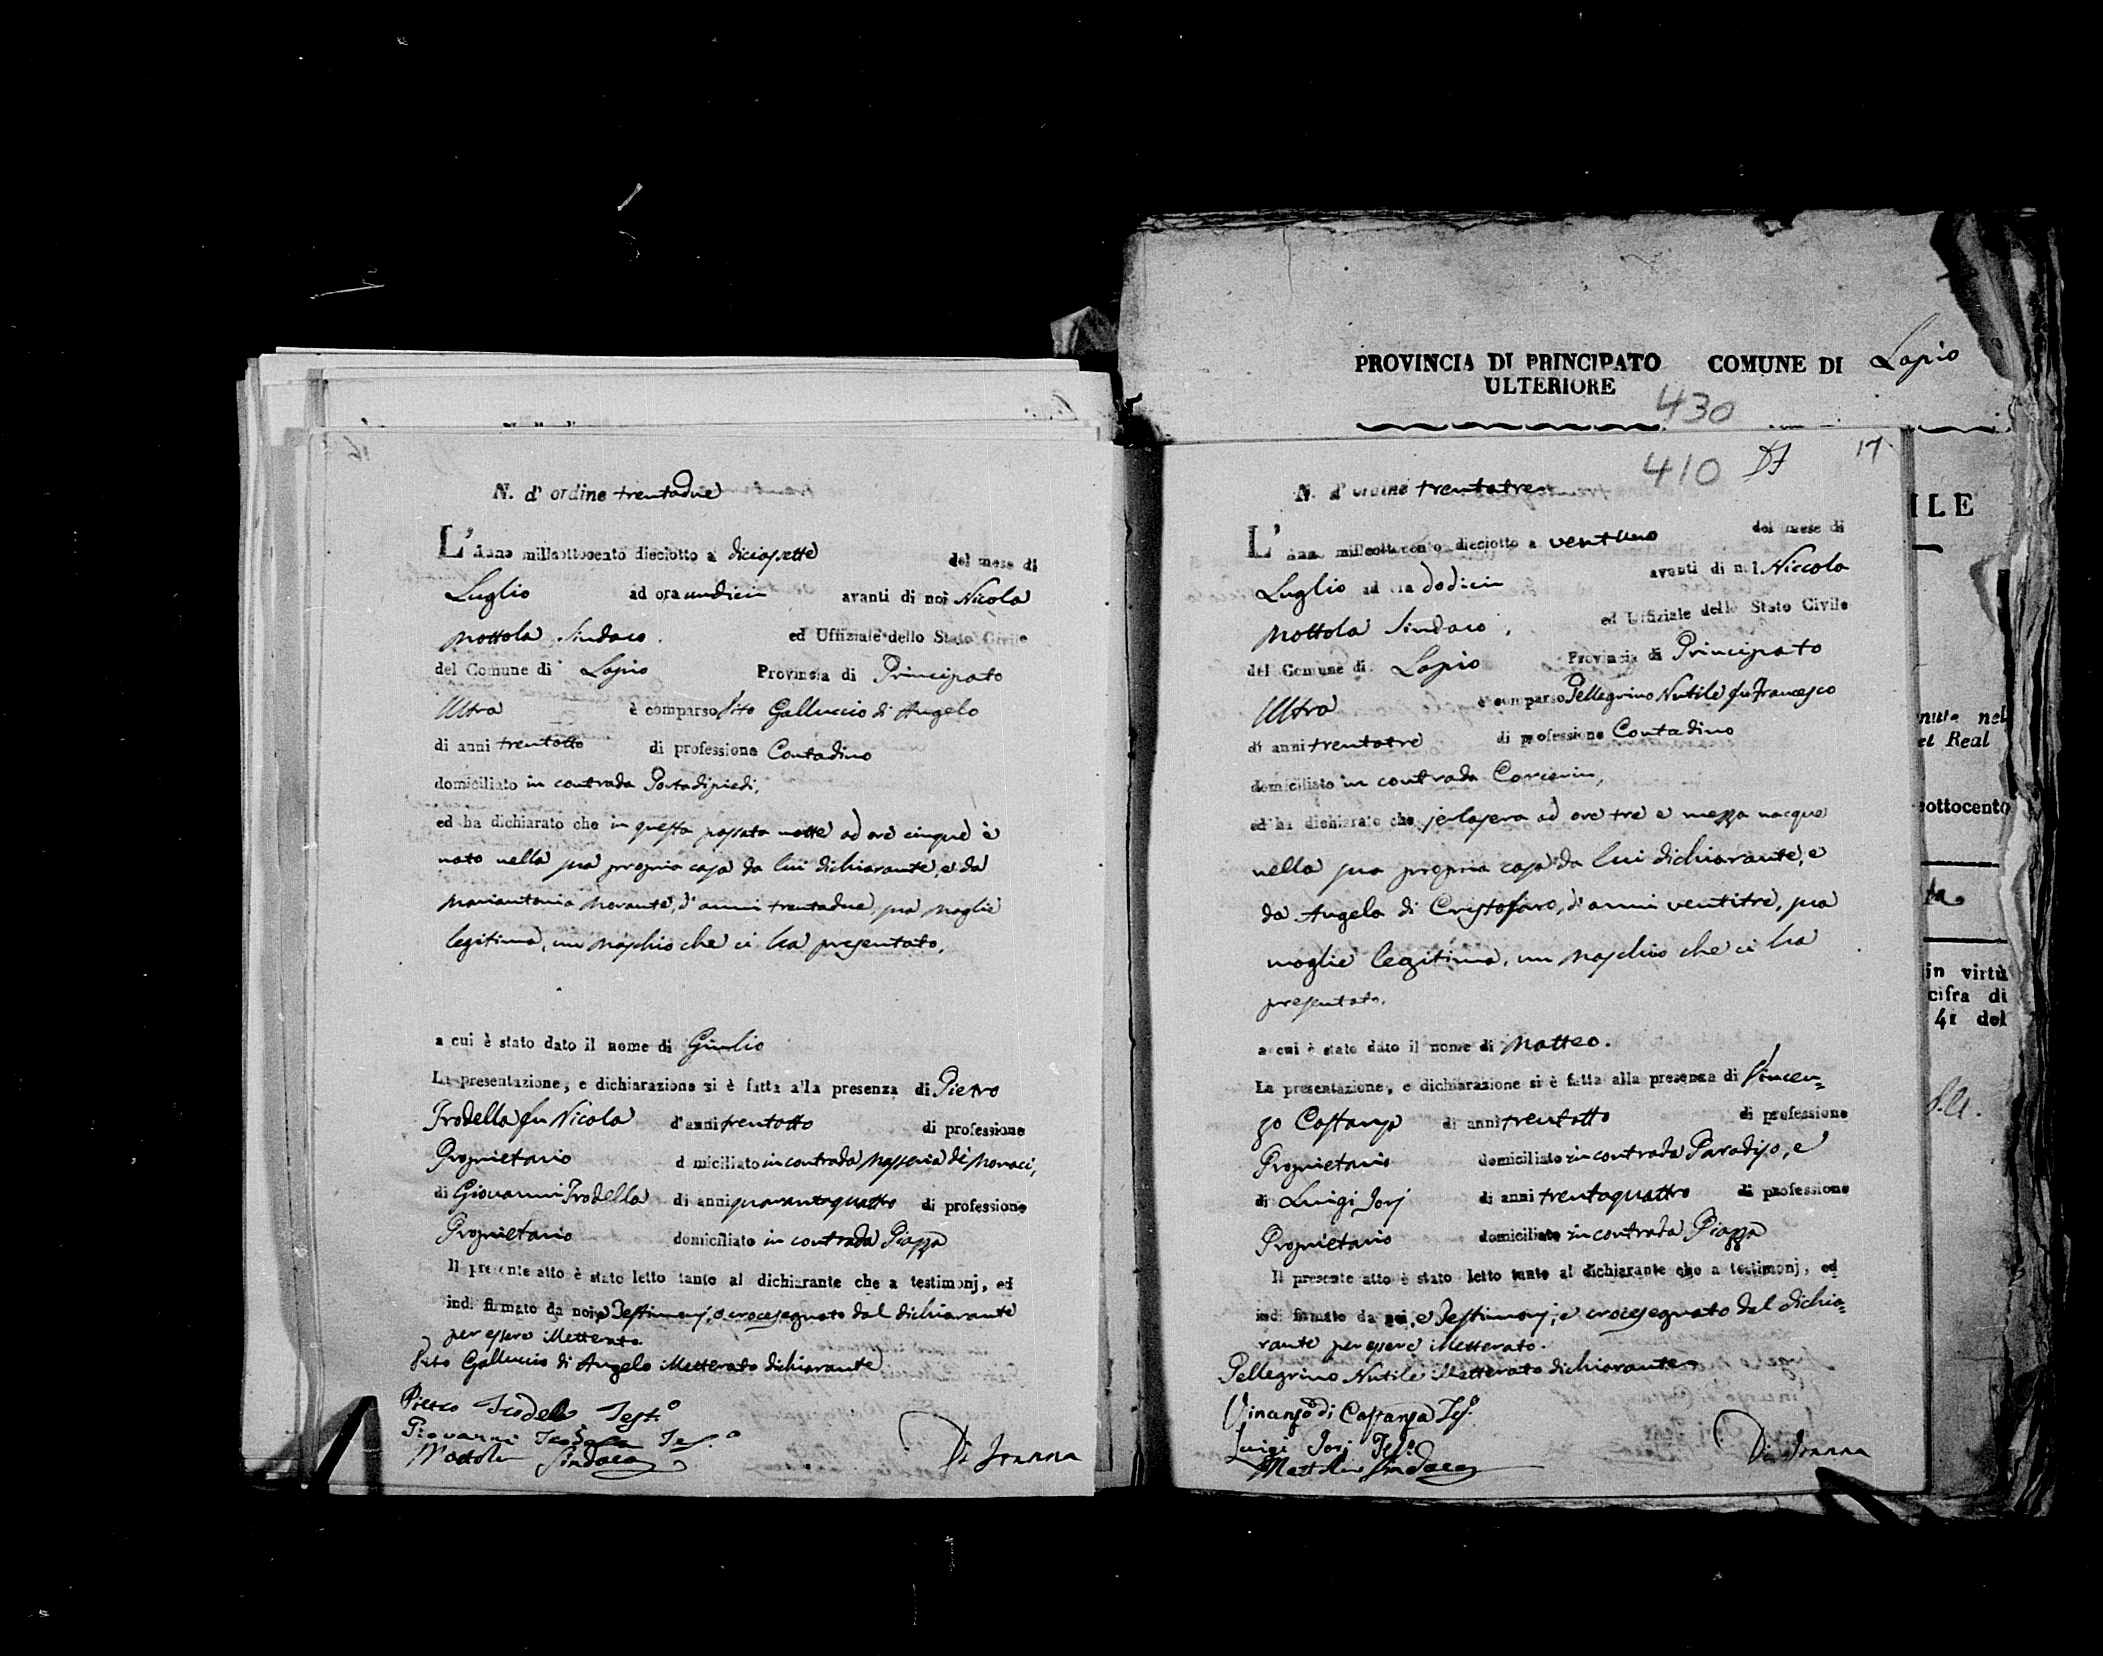 N. d' ordine trentadue
L' Anno milleottocento dieciotto a diciasette del mese di
Luglio ad ora undici avanti di noi Nicola
Mottola Sindaco. ed Uffiziale dello Stato Civile
del Comune di Lapio Provincia di Principato
Ultra è comparso Vito Galluccio di Angelo
di anni trentotto di professione Contadino
domiciliato in contrada Portadipiedi,
ed ha dichiarato che in questa passata notte ad ore cinque è
nato nella sua propria casa da lui dichiarante, e da
Mariantonia Morante, d'anni trentadue, sua moglie
legitima, un maschio che ci ha presentato.
a cui è stato dato il nome di Giulio
La presentazione, e dichiarazione si è fatta alla presenza di Pietro
Trodella fu Nicola d'anni trentotto di professione
Proprietario domiciliato in contrada Masseria de' Monaci,
di Giovanni Trodella di anni quarantaquattro di professione
Proprietario domiciliato in contrada Piazza
Il presente atto è stato letto tanto al dichiarante che a testimonj, ed
indi firmato da noi, e Testimonj, e crocesegnato dal dichiarante
per essere illetterato.
Vito Galluccio di Angelo illetterato dichiarante
Pietro Trodella Test.o
Giovanni Trodella Tes.o
Mottola Sindaco
Di Ioanna
PROVINCIA DI PRINCIPATO COMUNE DI Lapio
ULTERIORE
430
410 17
N. d' ordine trentatre
L' Anno milleottocento dieciotto a ventuno del mese di
Luglio ad ora dodici avanti di noi Niccola
Mottola Sindaco, ed Uffiziale dello Stato Civile
del Comune di Lapio Provincia di Principato
Ultra è comparso Pellegrino Nutile fu Francesco
di anni trentatre di professione Contadino
domiciliato in contrada Carcerin,
ed ha dichiarato che jerlasera ad ore tre e mezza nacque
nella sua propria casa da lui dichiarante, e
da Angela di Cristofaro, d'anni ventitre, sua
moglie legitima, un maschio che ci ha
presentato.
a cui è stato dato il nome di Matteo.
La presentazione, e dichiarazione si è fatta alla presenza di Vincen=
zo Costanza di anni trentotto di professione
Proprietario domiciliato in contrada Paradiso, e
di Luigi Iorj di anni trentaquattro di professione
Proprietario domiciliato in contrada Piazza
Il presente atto è stato letto tanto al dichiarante che a testimonj, ed
indi firmato da noi, e Testimonj, e crocesegnato dal dichia=
rante per essere illetterato.
Pellegrino Nutile illetterato dichiarante
Vincenzo di Costanza Tes.o
Luigi Iorj Tes.o
Mottola Sindaco
Di Ioanna
ILE
nute nel
el Real
sottocento
in virtù
cifra di
41 del